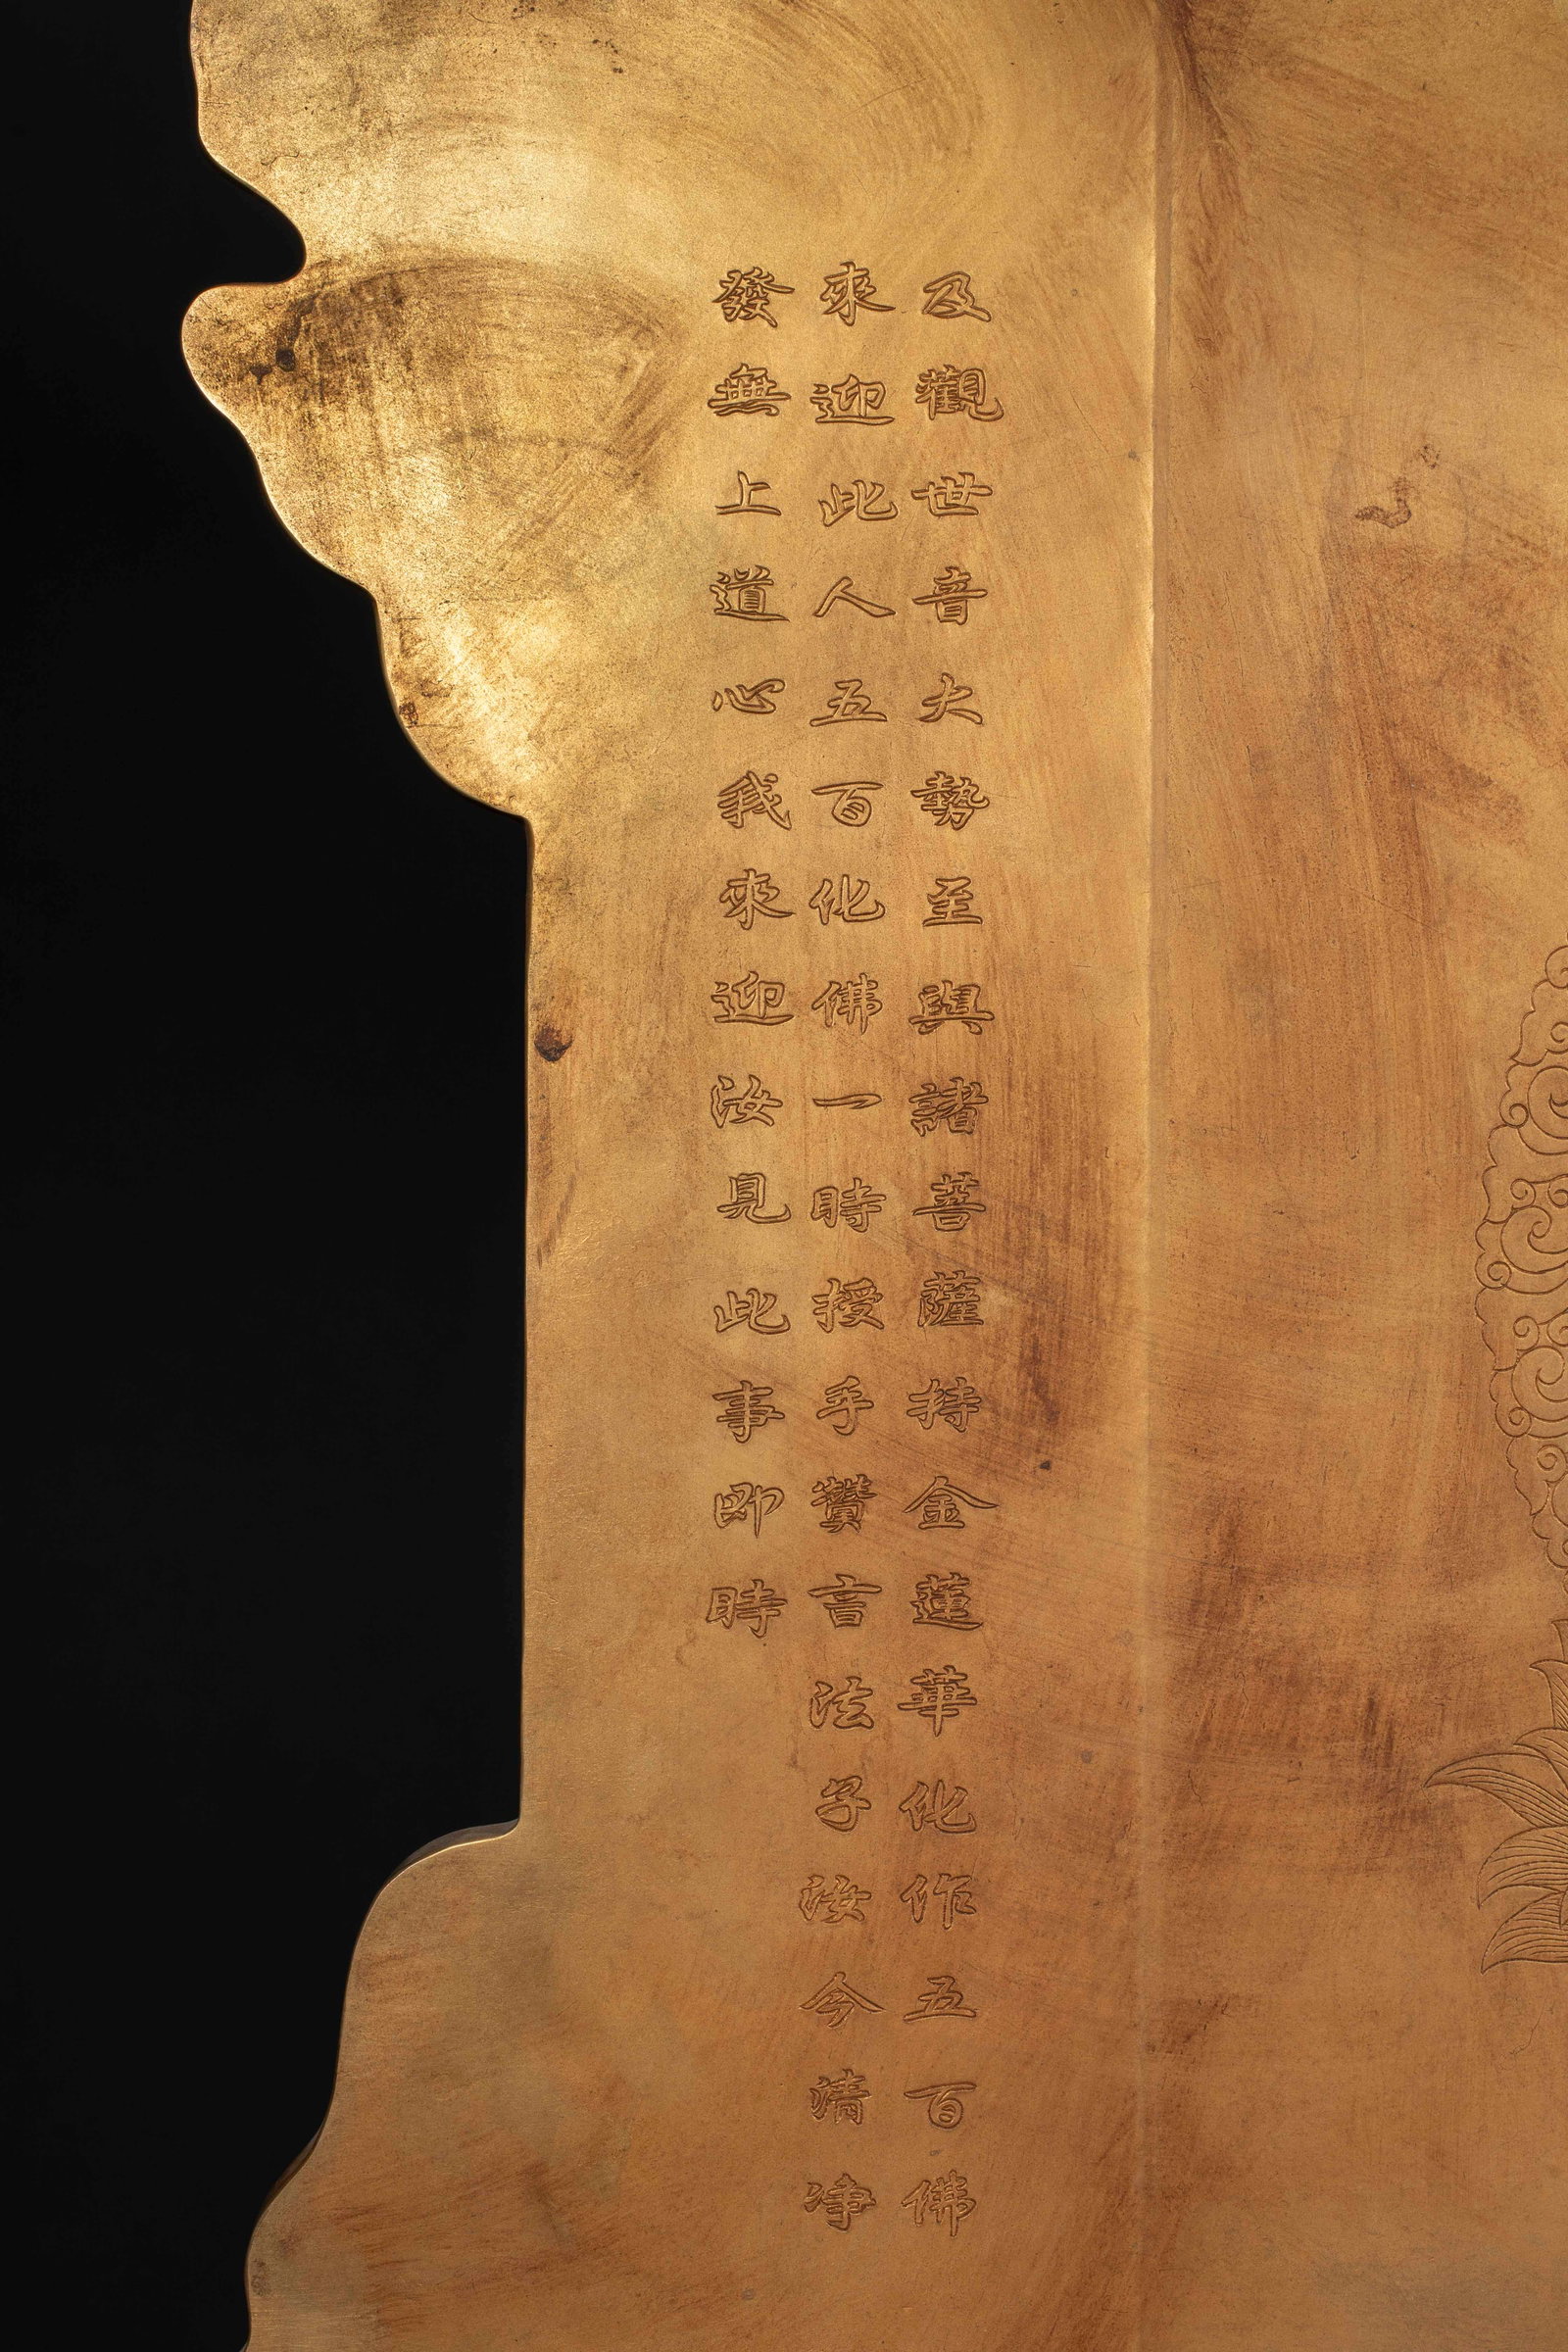 及觀世音大勢至與諸菩薩持金蓮華化作五百佛
來迎此人五百化佛一時授手讚言法子汝今清净
發無上道心我來迎汝見此事即時